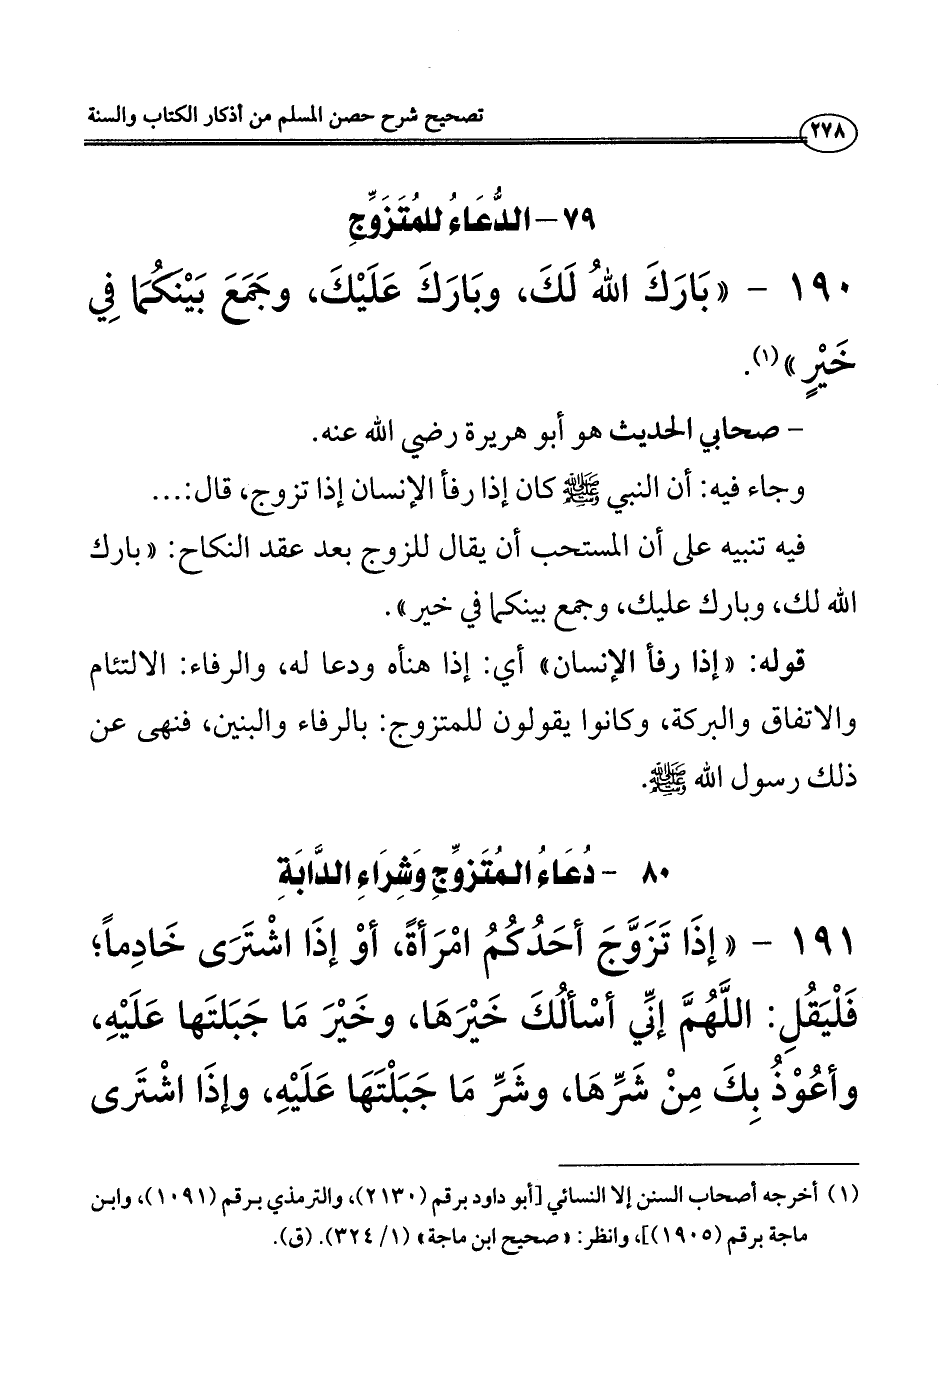 تصحيح شرح حصن المسلم من أذكار الكتاب والسنة
٢٧٨
٧٩- الدُّعَاءُ للمُتَزَوِّجِ
١٩٠ - «بَارَكَ اللهُ لَكَ، وبَارَكَ عَلَيْكَ، وجَمَعَ بَيْنَكُمَا فِي
خَيْرٍ»(١).
- صحابي الحديث هو أبو هريرة رضي الله عنه.
وجاء فيه: أن النبي ﷺ كان إذا رفأ الإنسان إذا تزوج، قال:...
فيه تنبيه على أن المستحب أن يقال للزوج بعد عقد النكاح: «بارك
الله لك، وبارك عليك، وجمع بينكما في خير».
قوله: «إذا رفأ الإنسان» أي: إذا هنأه ودعا له، والرفاء: الالتئام
والاتفاق والبركة، وكانوا يقولون للمتزوج: بالرفاء والبنين، فنهى عن
ذلك رسول الله ﷺ.
٨٠ - دُعَاءُ المُتَزوِّجِ وَشِرَاءِ الدَّابَةِ
١٩١ - «إذَا تَزَوَّجَ أحَدُكُمُ امْرَأةً، أوْ إذَا اشْتَرَى خَادِماً؛
فَلْيَقُلِ: اللَّهُمَّ إنِّي أسْألُكَ خَيْرَهَا، وخَيْرَ مَا جَبَلتَها عَلَيْهِ،
وأعُوْذُ بِكَ مِنْ شَرِّهَا، وشَرِّ مَا جَبَلْتَهَا عَلَيْهِ، وإذَا اشْتَرى
(١) أخرجه أصحاب السنن إلا النسائي [أبو داود برقم (٢١٣٠)، والترمذي برقم (١٠٩١)، وابن
ماجة برقم (١٩٠٥)]، وانظر: «صحيح ابن ماجة» (١/ ٣٢٤). (ق).